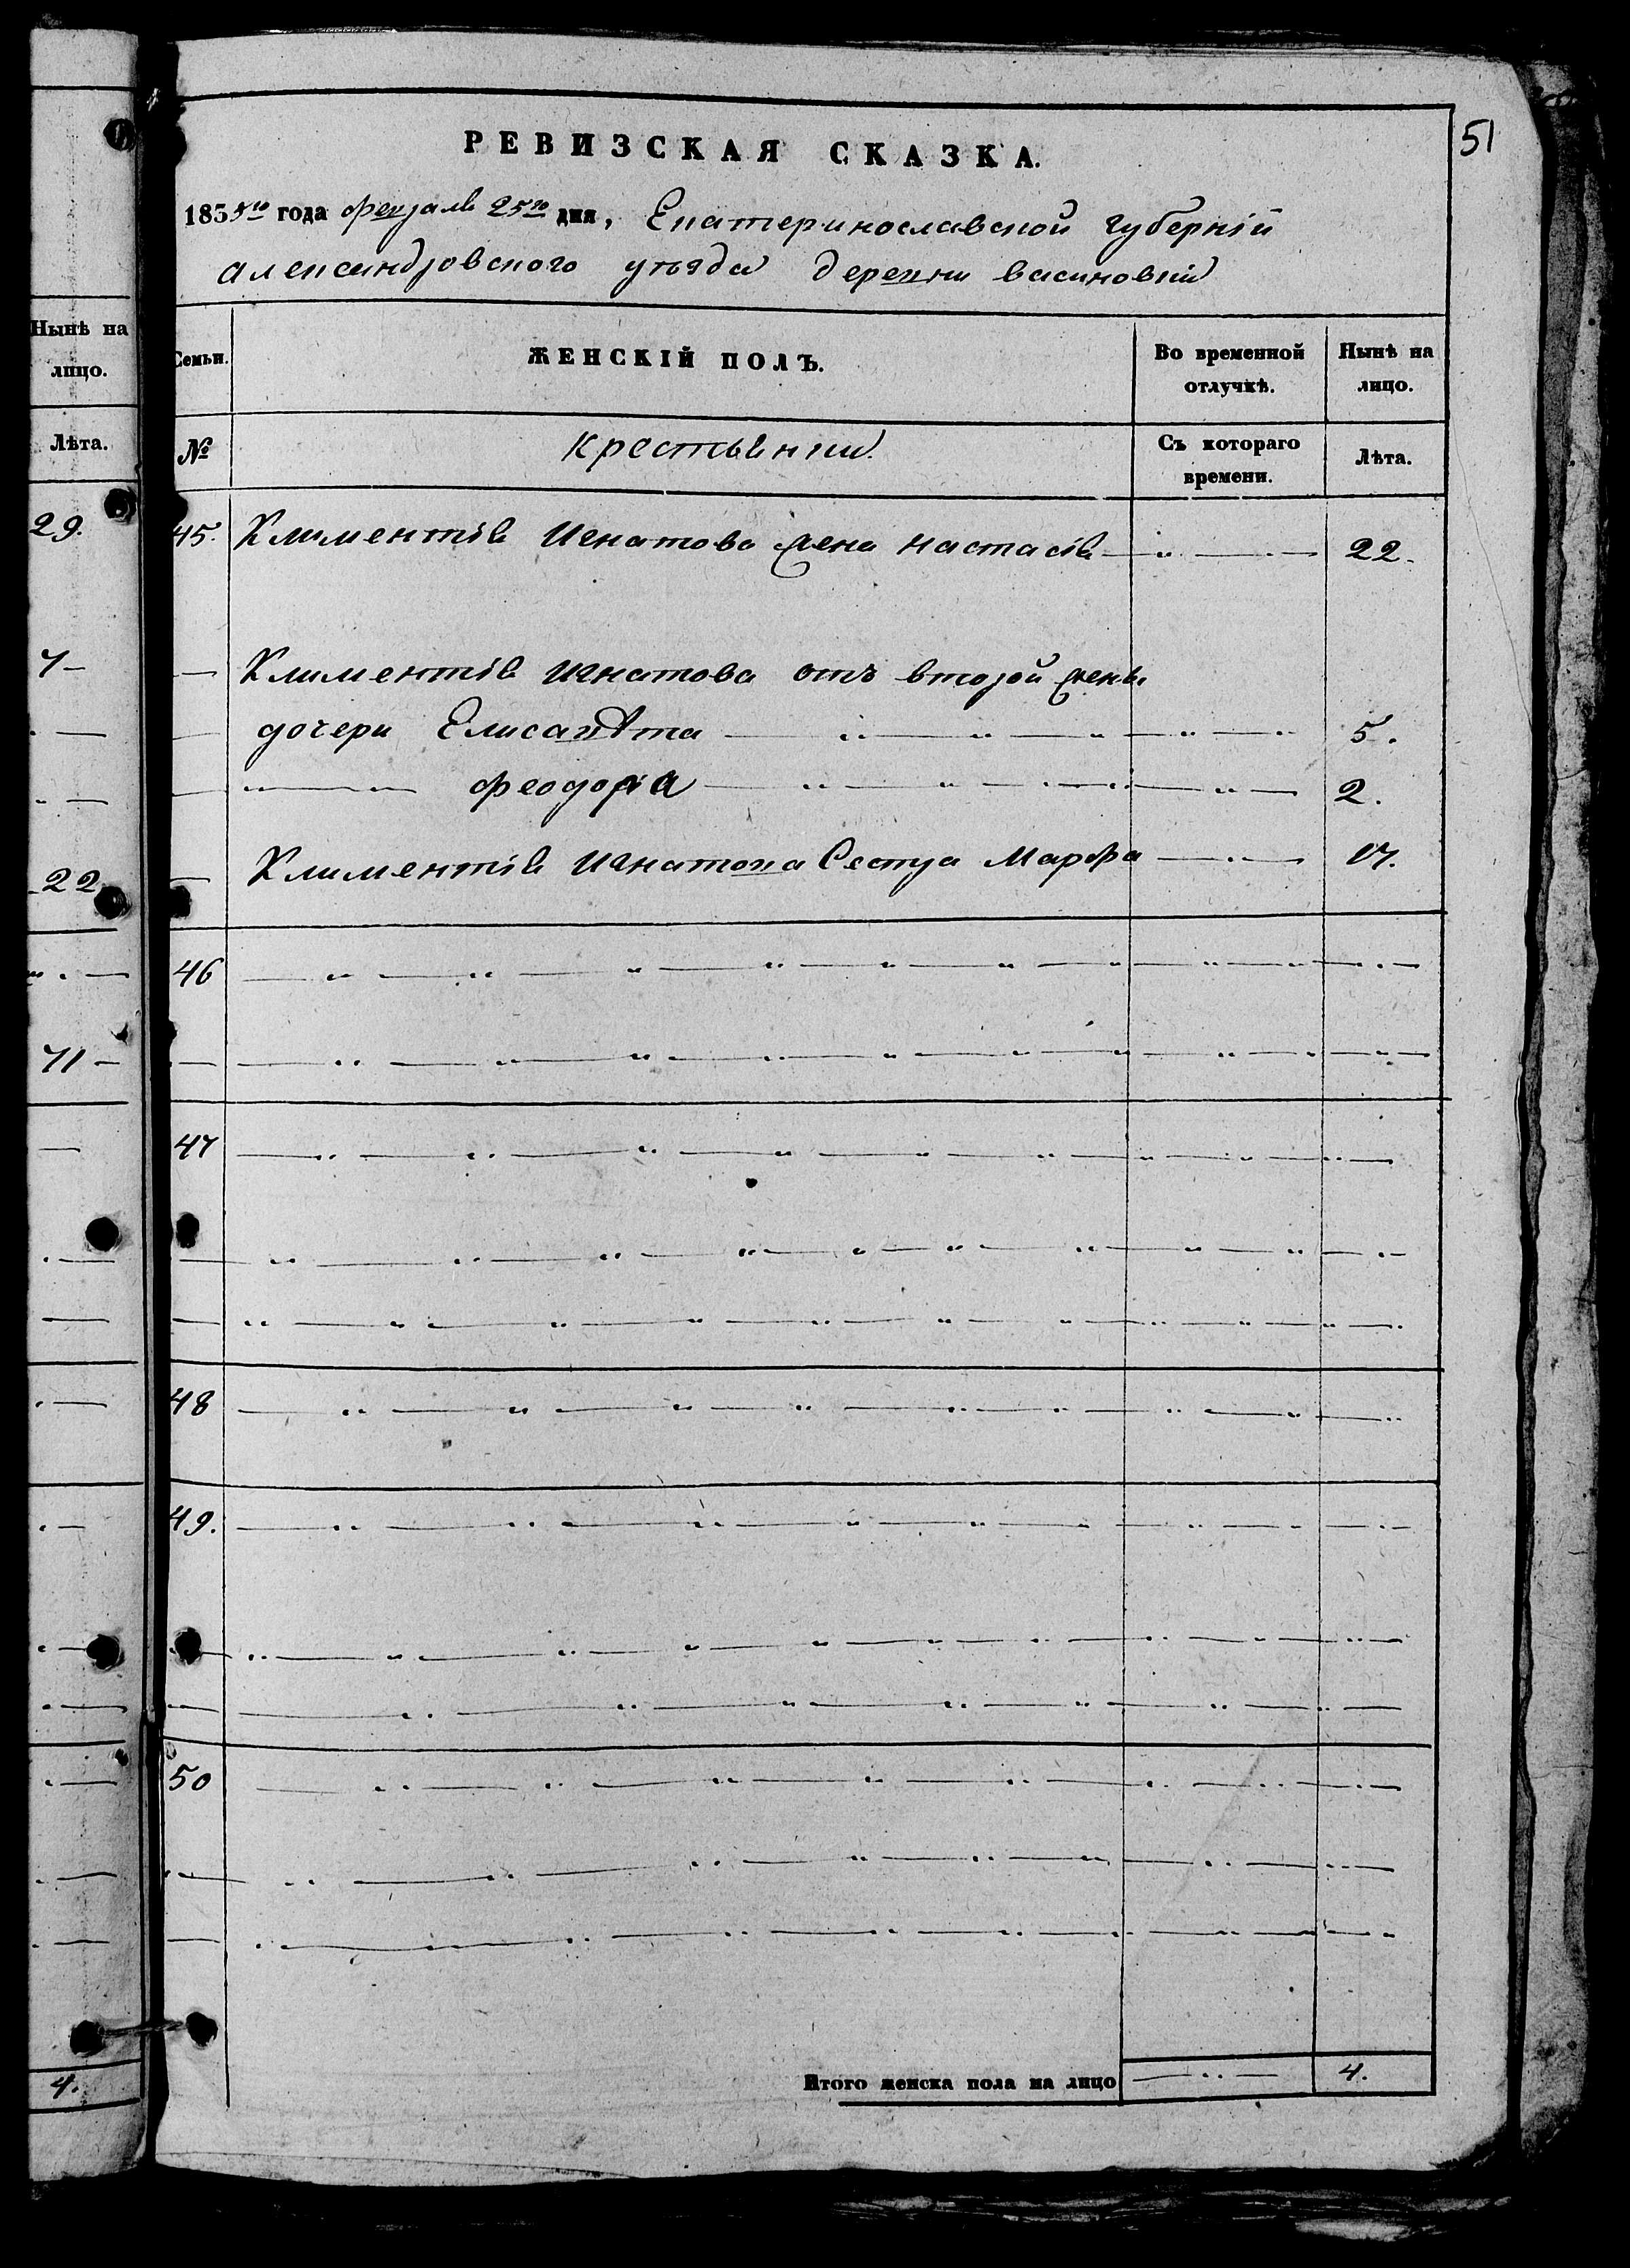 51
РЕВИЗСКАЯ СКАЗКА.
1835го года февраля 25го дня, Екатеринославской губерніи
александровского уѣзда деревни васиновки
Семьи. ЖЕНСКІЙ ПОЛЪ. Во временной отлучкѣ. Нынѣ на лицо.
№ крестьянки. Съ котораго времени. Лѣта.
45. Климентія Игнатова жена настасія 22.
Климентія игнатова отъ второй жены
дочери Елисавѣта 5.
феодора 2.
Климентія игнатова Сестра Марфа 17.
46
47
48
49.
50
Итого женска пола на лицо 4.
Нынѣ на
лицо.
Лѣта.
29.
7
22
71
4.